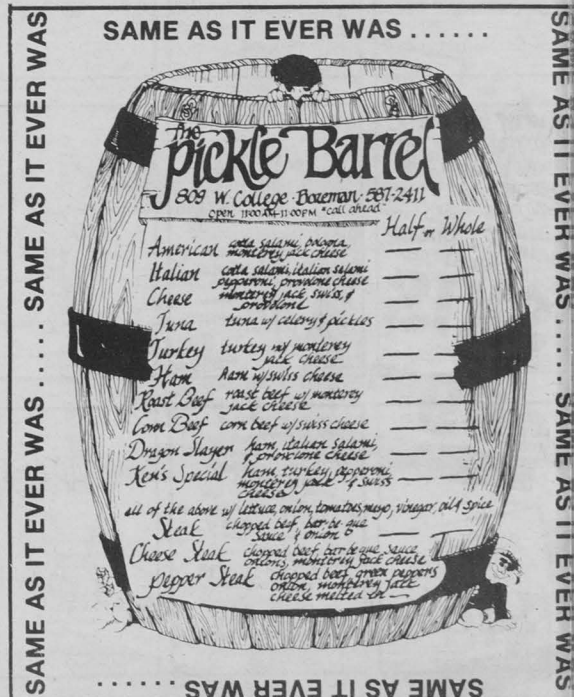 SAME AS IT EVER WAS ......
SAME AS IT EVER WAS ..... SAME AS IT EVER WAS
The
Pickle Barrel
809 W. College · Bozeman · 587-2411
Open 11:00 AM-11:00 PM "call ahead"
Half or Whole
American cotta salami, bologna,
monterey jack cheese
Italian cotta salami, italian salami
pepperoni, provolone cheese
Cheese monterey jack, swiss, &
provolone
Tuna tuna w/ celery & pickles
Turkey turkey w/ monterey
jack cheese
Ham Ham w/swiss cheese
Roast Beef roast beef w/ monterey
jack cheese
Corn Beef corn beef w/swiss cheese
Dragon Slayer ham, italian salami,
& provolone cheese
Ken's Special ham, turkey, pepperoni,
monterey jack & swiss
cheese
all of the above w/ lettuce, onion, tomatoes, mayo, vinegar, oil & spice
Steak chopped beef bar·be·que
sauce & onion
Cheese Steak chopped beef bar be que sauce,
onions, monterey jack cheese
Pepper Steak chopped beef green peppers
onion, monterey jack
cheese melted on
SAME AS IT EVER WAS ..... SAME AS IT EVER WAS
SAME AS IT EVER WAS ......